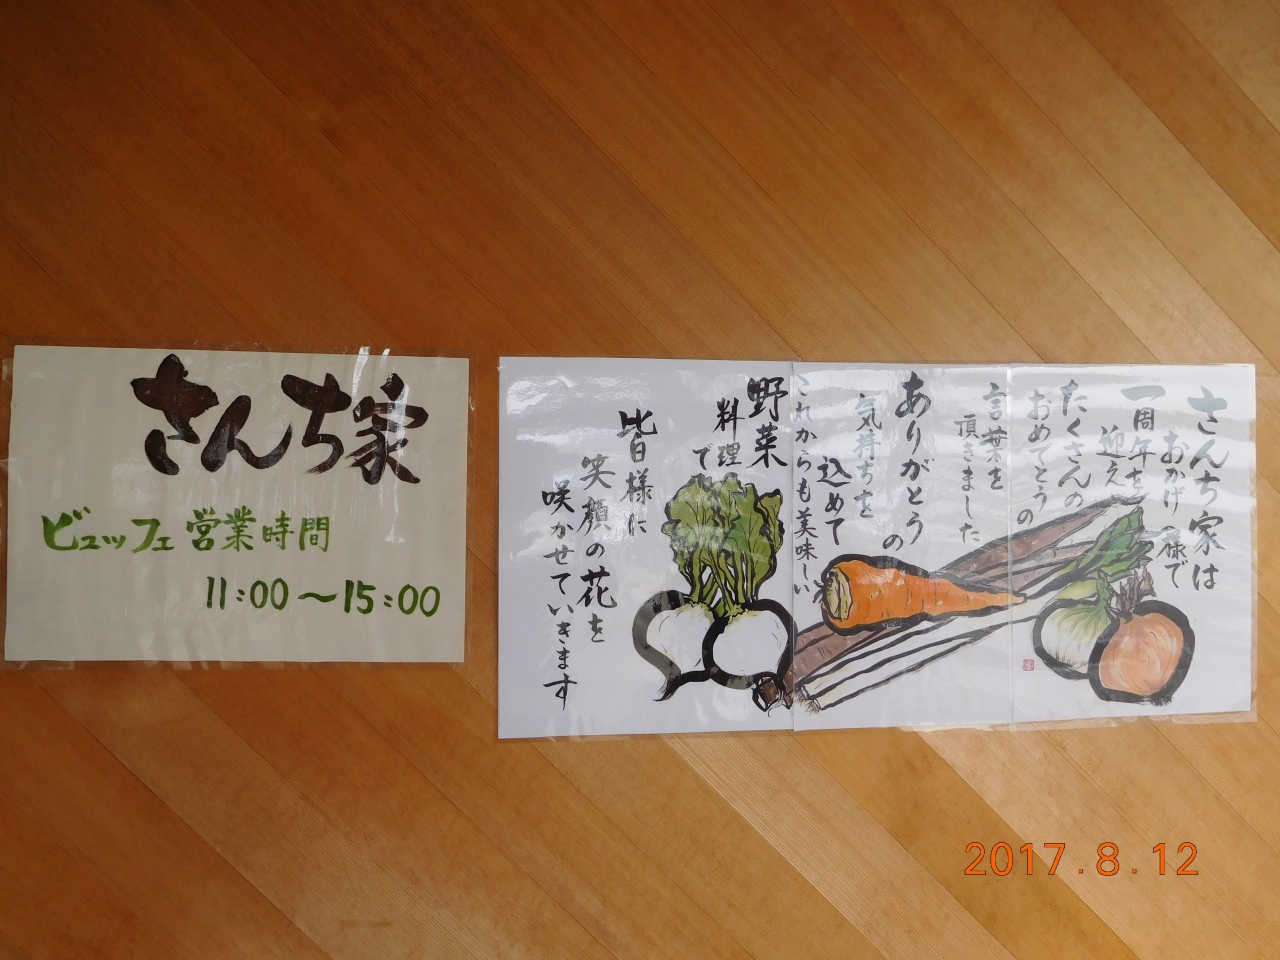 さんち家
ビュッフェ営業時間
11:00〜15:00
さんち家は
おかげ様で
一周年を
迎え
たくさんの
おめでとうの
言葉を
頂きました
ありがとうの
気持ちを
込めて
これからも美味しい
野菜
料理
で
皆様に
笑顔の花を
咲かせていきます
2017.8.12